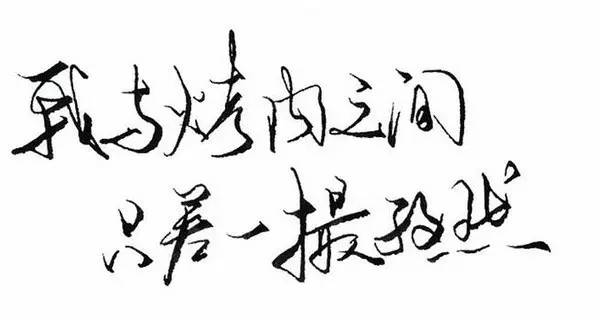 我与烤肉之间
只差一撮孜然